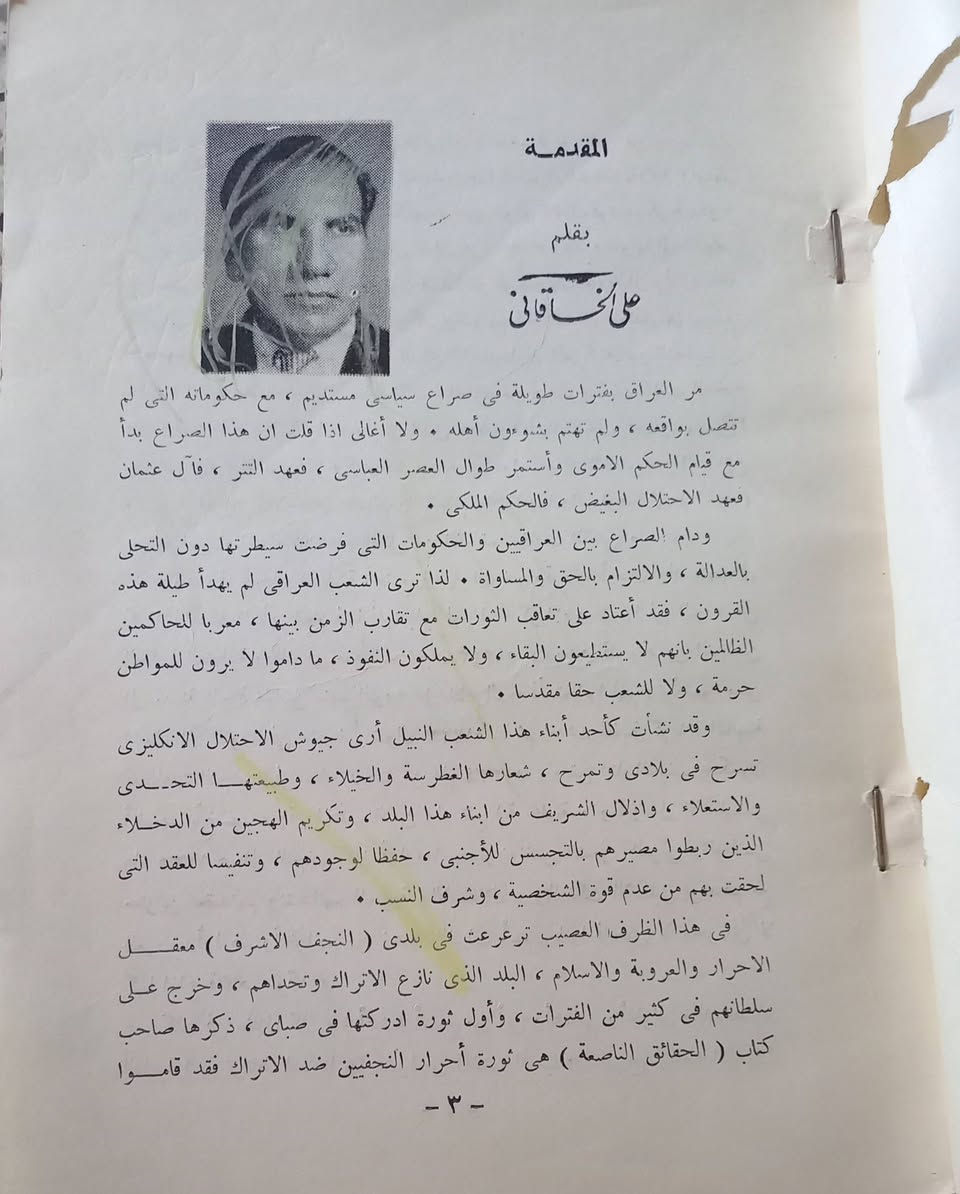 المقدمـة
بقلم
على الخـاقانى
مر العراق بفترات طويلة فى صراع سياسى مستديم ، مع حكوماته التى لم
تتصل بواقعه ، ولم تهتم بشوءون أهله ٠ ولا أغالى اذا قلت ان هذا الصراع بدأ
مع قيام الحكم الاموى وأستمر طوال العصر العباسى ، فعهد التتر ، فآل عثمان
فعهد الاحتلال البغيض ، فالحكم الملكى ٠
ودام الصراع بين العراقيين والحكومات التى فرضت سيطرتها دون التحلى
بالعدالة ، والالتزام بالحق والمساواة ٠ لذا ترى الشعب العراقى لم يهدأ طيلة هذه
القرون ، فقد أعتاد على تعاقب الثورات مع تقارب الزمن بينها ، معربا للحاكمين
الظالمين بانهم لا يستطيعون البقاء ، ولا يملكون النفوذ ، ما داموا لا يرون للمواطن
حرمة ، ولا للشعب حقا مقدسا ٠
وقد نشأت كأحد أبناء هذا الشعب النبيل أرى جيوش الاحتلال الانكليزى
تسرح فى بلادى وتمرح ، شعارها الغطرسة والخيلاء ، وطبيعتهـا التحـدى
والاستعلاء ، واذلال الشريف من ابناء هذا البلد ، وتكريم الهجين من الدخـلاء
الذين ربطوا مصيرهم بالتجسس للأجنبى ، حفظا لوجودهم ، وتنفيسا للعقد التى
لحقت بهم من عدم قوة الشخصية ، وشرف النسب ٠
فى هذا الظرف العصيب ترعرعت فى بلدى ( النجف الاشرف ) معقـل
الاحرار والعروبة والاسلام ، البلد الذى نازع الاتراك وتحداهم ، وخرج علـى
سلطانهم فى كثير من الفترات ، وأول ثورة ادركتها فى صباى ، ذكرها صاحب
كتاب ( الحقائق الناصعة ) هى ثورة أحرار النجفيين ضد الاتراك فقد قامـوا
- ٣ -